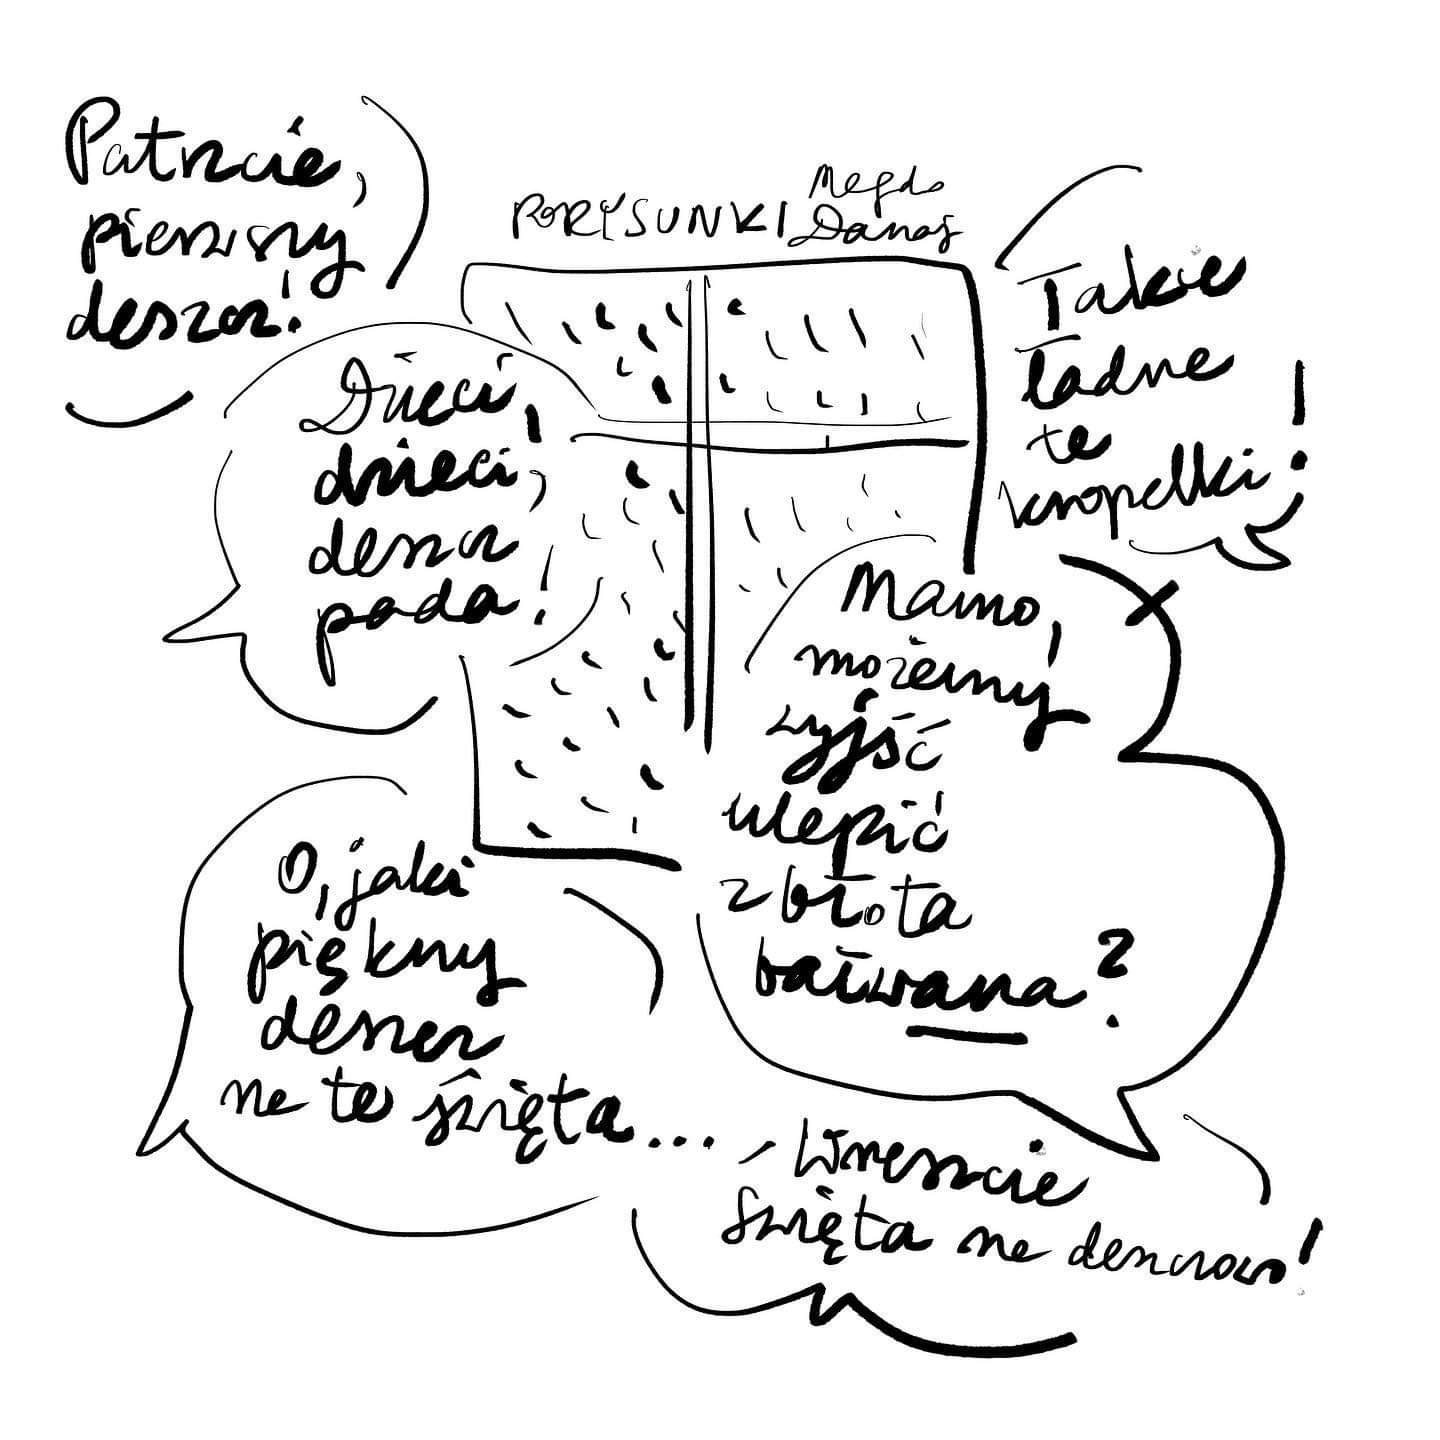 Patrzcie,
pierwszy
deszcz!
PORYSUNKI
Magda
Danaj
Dzieci,
dzieci,
deszcz
pada!
Takie
ładne
te
kropelki!
Mamo,
możemy
wyjść
ulepić
z błota
bałwana?
O, jaki
piękny
deszcz
na te święta...
Wreszcie
święta na deszczowo!